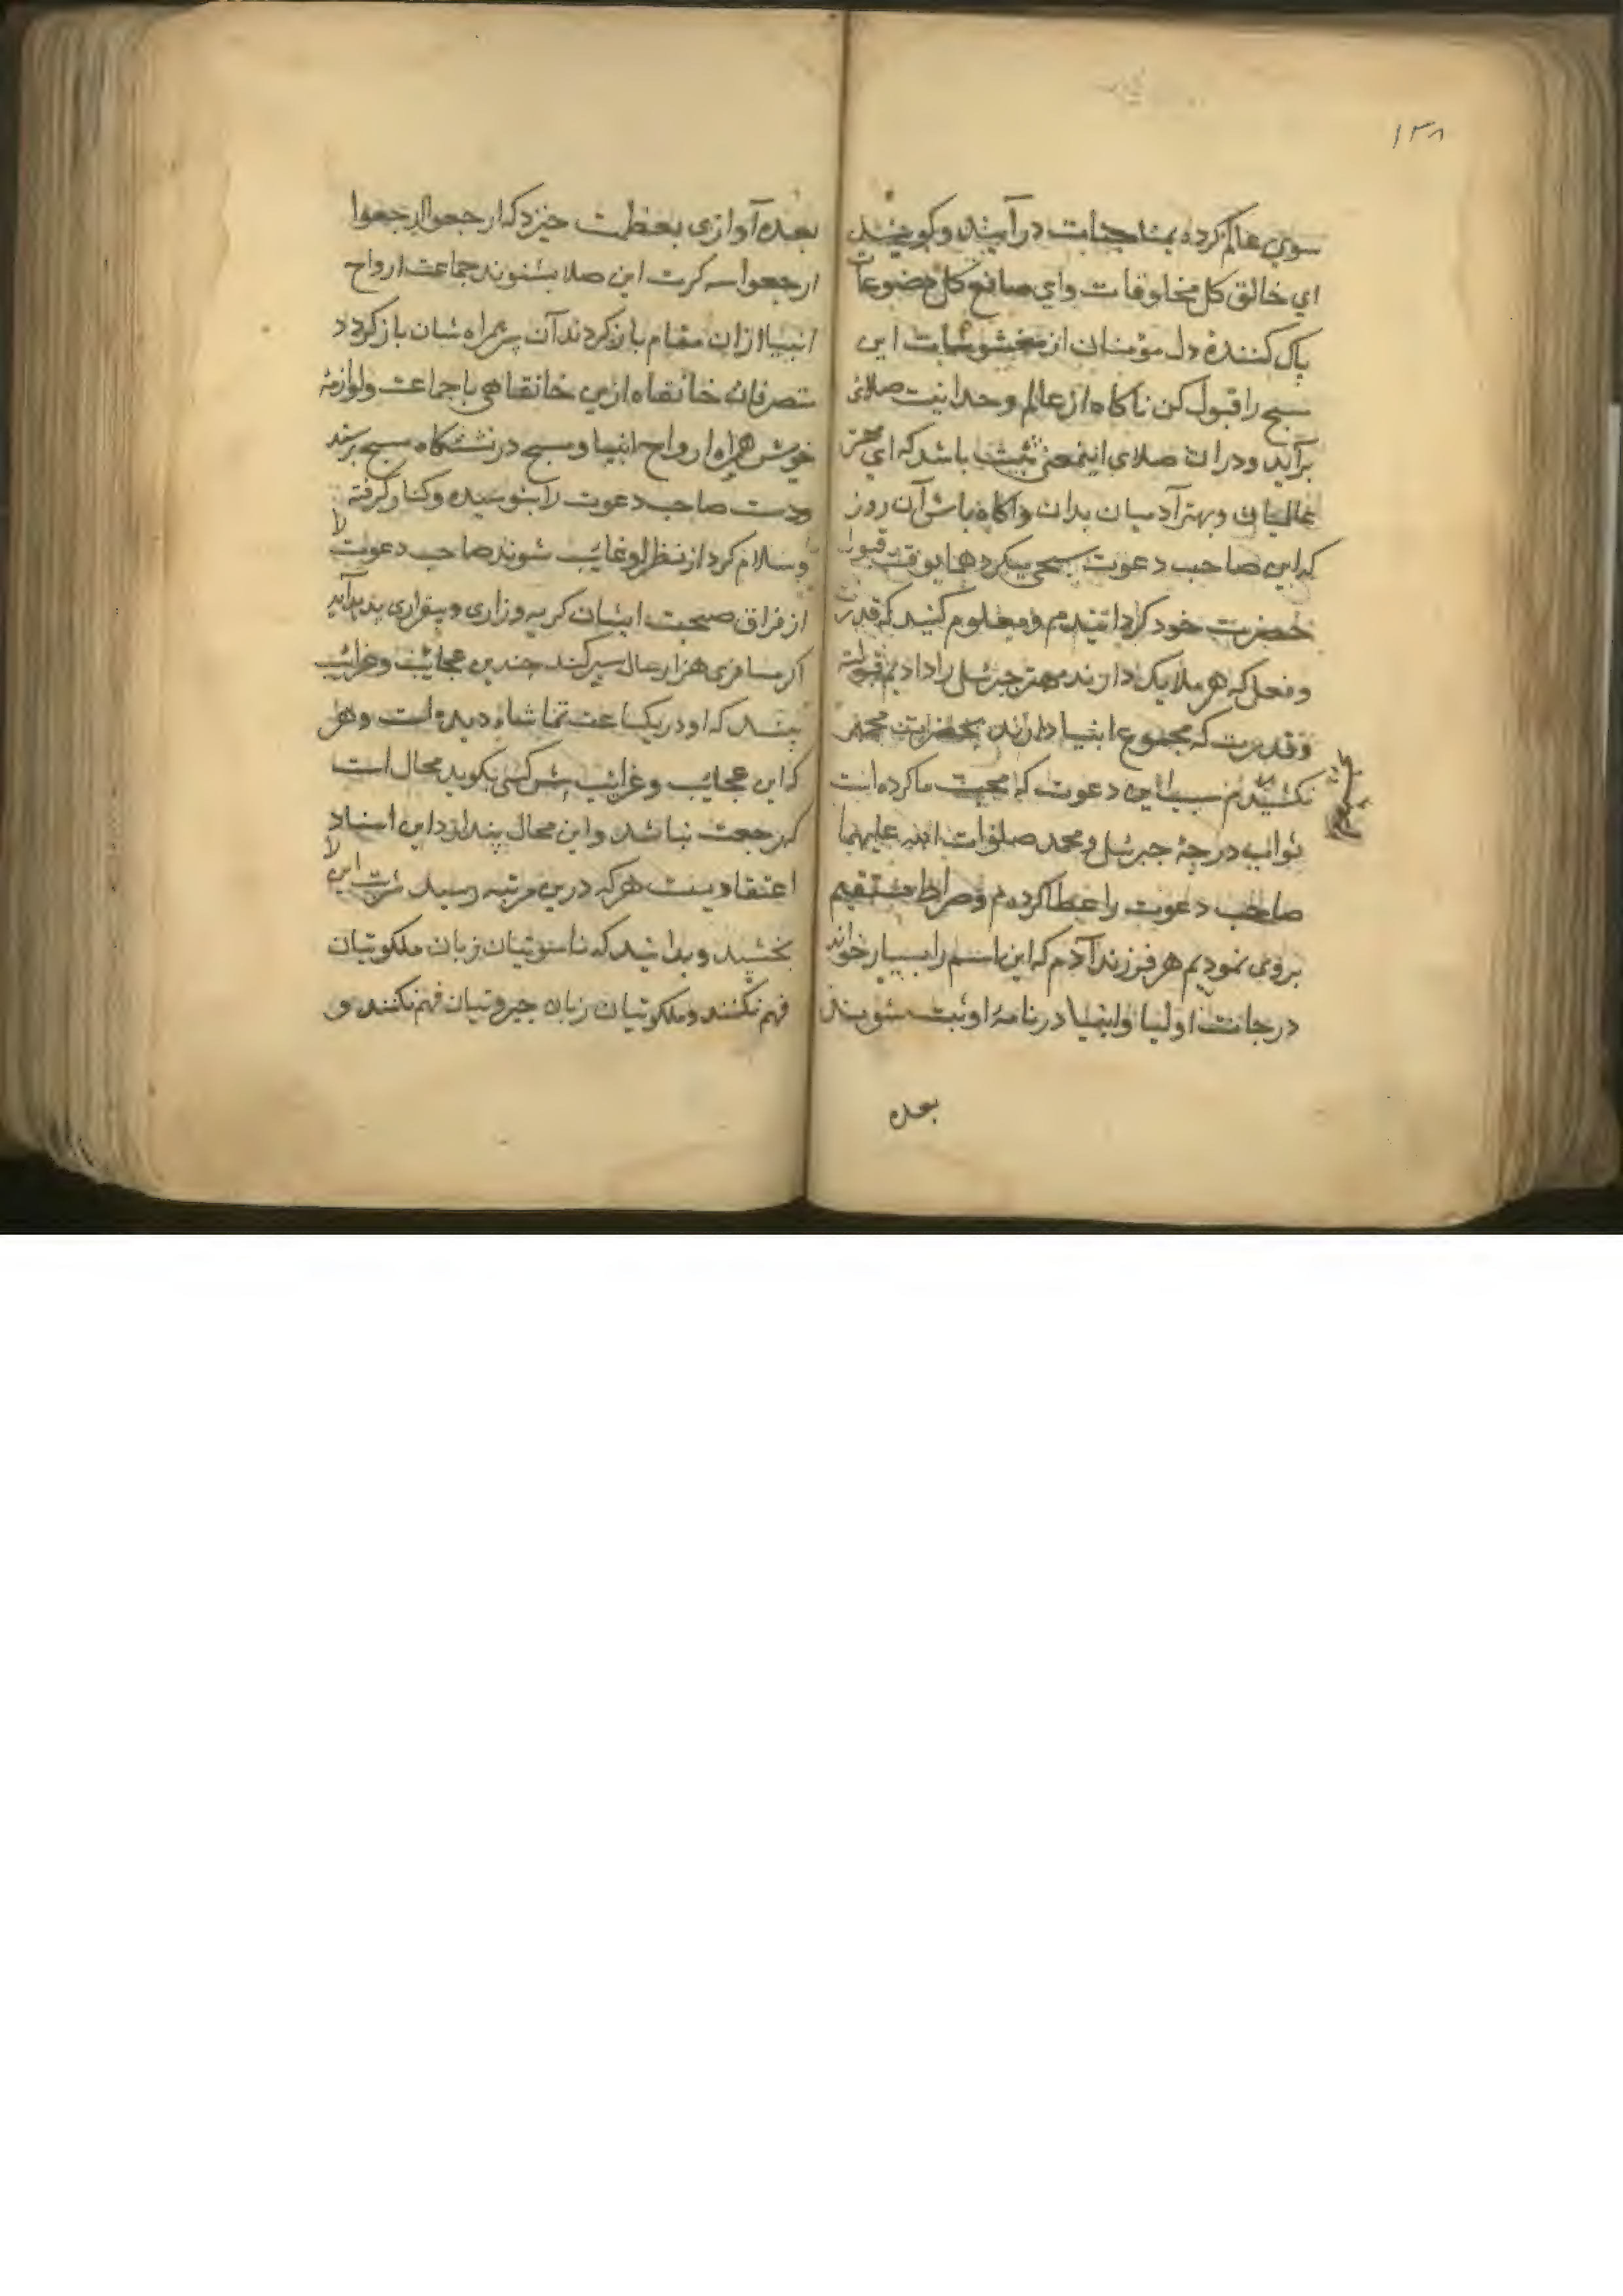 ۱۳۸
سوی عالم کرده بمناجات درآیند و کویند
ای خالق کل مخلوقات و ای صانع کل مصنوعات
پاک کنندهٔ دل مؤمنان از این
سبح را قبول کن ناکاه از عالم وحدانیت صلائی
برآید و دران صلای اینمعنی ثبت باشد که ای
عالمیان و بهتر آدمیان بدان و اکاه باش آن روز
که این صاحب دعوت میکرد قبول
حضرت خود کردانیدم و معلوم کنید که قدرت
و فعل که هر ملایک دارند مهتر جبرئیل را دادیم
و قدرت که مجموع انبیا دارند بحضرت محمد
این دعوت که محبت ما کرده است
ثواب درجهٔ جبرئیل و محمد صلوات الله علیهما
صاحب دعوت را عطا کردم و صراط مستقیم
بروی نمودیم هر فرزند آدم که این اسم را بسیار خواند
درجات اولیا و انبیا در نامهٔ او ثبت شوند
بعده
بعده آوازی بعظمت خیزد که ارجعوا ارجعوا
ارجعوا سه کرت این صلا بشنوند جماعت ارواح
انبیا ازان مقام باز کردند آن همراه شان باز کردد
متصرفان خانقاه ازین خانقاهی با جماعت و لوازمهٔ
خویش همراه ارواح انبیا و سبح در سبح برسند
ودست صاحب دعوت را بنوسیده و کنار کرفته
وسلام کرد از نظر او غایب شوند صاحب دعوت لا
از فراق صحبت ایشان کریه و زاری و بیقراری پدید آید
اکر مسافری هزار سال سیر کند چندین عجایب و غرائب
بیند که او در یکساعت تماشاه دیده است و هر
که این عجایب و غرائب پیش کسی بکوید محال است
که رجعت نباشد و این محال پندارد این اسناد
اعتقادیست هرکه درین مرتبه رسید شربت این لا
بخشید و بدانید که ناسوتیان زبان ملکوتیان
فهم نکنند و ملکوتیان زبان جبروتیان فهم نکنند و